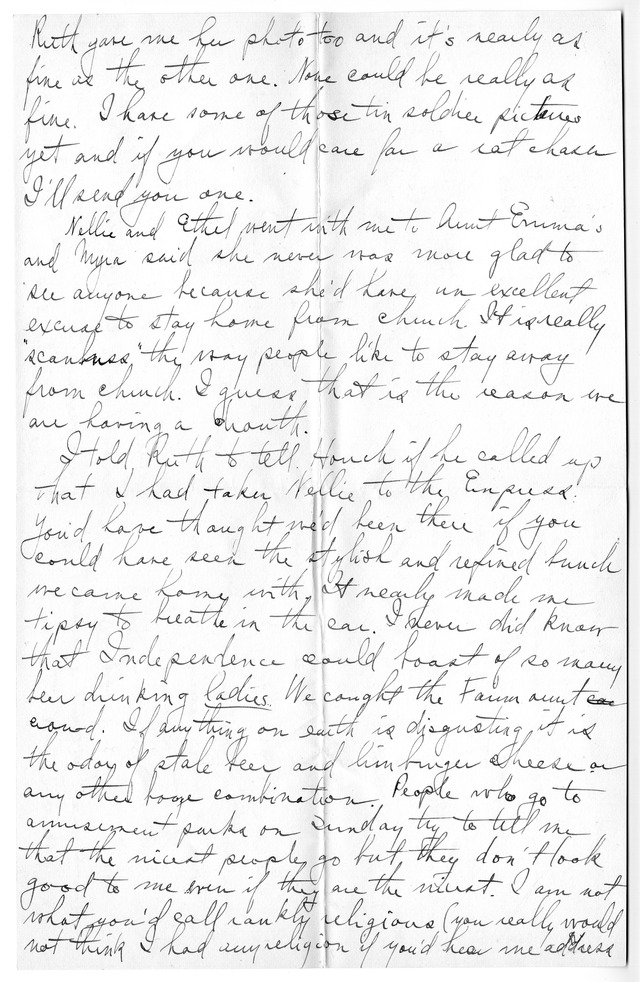 Ruth gave me her photo too and it's nearly as
fine as the other one. None could be really as
fine. I have some of those tin soldier pictures
yet and if you would care for a rat chaser
I'll send you one.
Nellie and Ethel went with me to Aunt Emma's
and Myra said she never was more glad to
see anyone because she'd have an excellent
excuse to stay home from church. It is really
the way people like to stay away
from church. I guess that is the reason we
are having a drouth.
I told Ruth to tell Houch if he called up
that I had taken Nellie to the Empress.
You'd have thought we'd been there if you
could have seen the stylish and refined bunch
we came home with. It nearly made me
tipsy to breathe in the car. I never did know
that Independence could boast of so many
beer drinking ladies. We caught the Fairmount car
crowd. If anything on earth is disgusting it is
the odor of stale beer and limburger cheese or
any other booze combination. People who go to
amusement parks on Sunday try to tell me
that the nicest people go but they don't look
good to me even if they are the nicest. I am not
what you'd call rankly religious (you really would
not think I had any religion if you'd hear me address